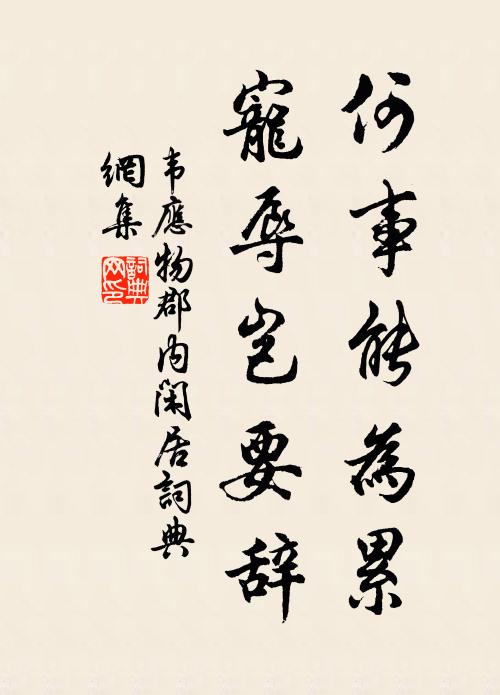 何事能為累
寵辱岂要辞
韦應物郡内闲居詞典
網集
詞典
网印